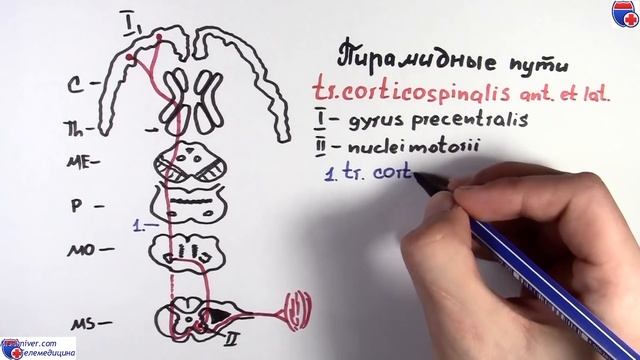 Пирамидные пути
tr. corticospinalis ant. et lat.
I - gyrus precentralis
II - nuclei motorii
1. tr. cort
I
C
Th
ME
P
1.
MO
MS
II
елемедицина